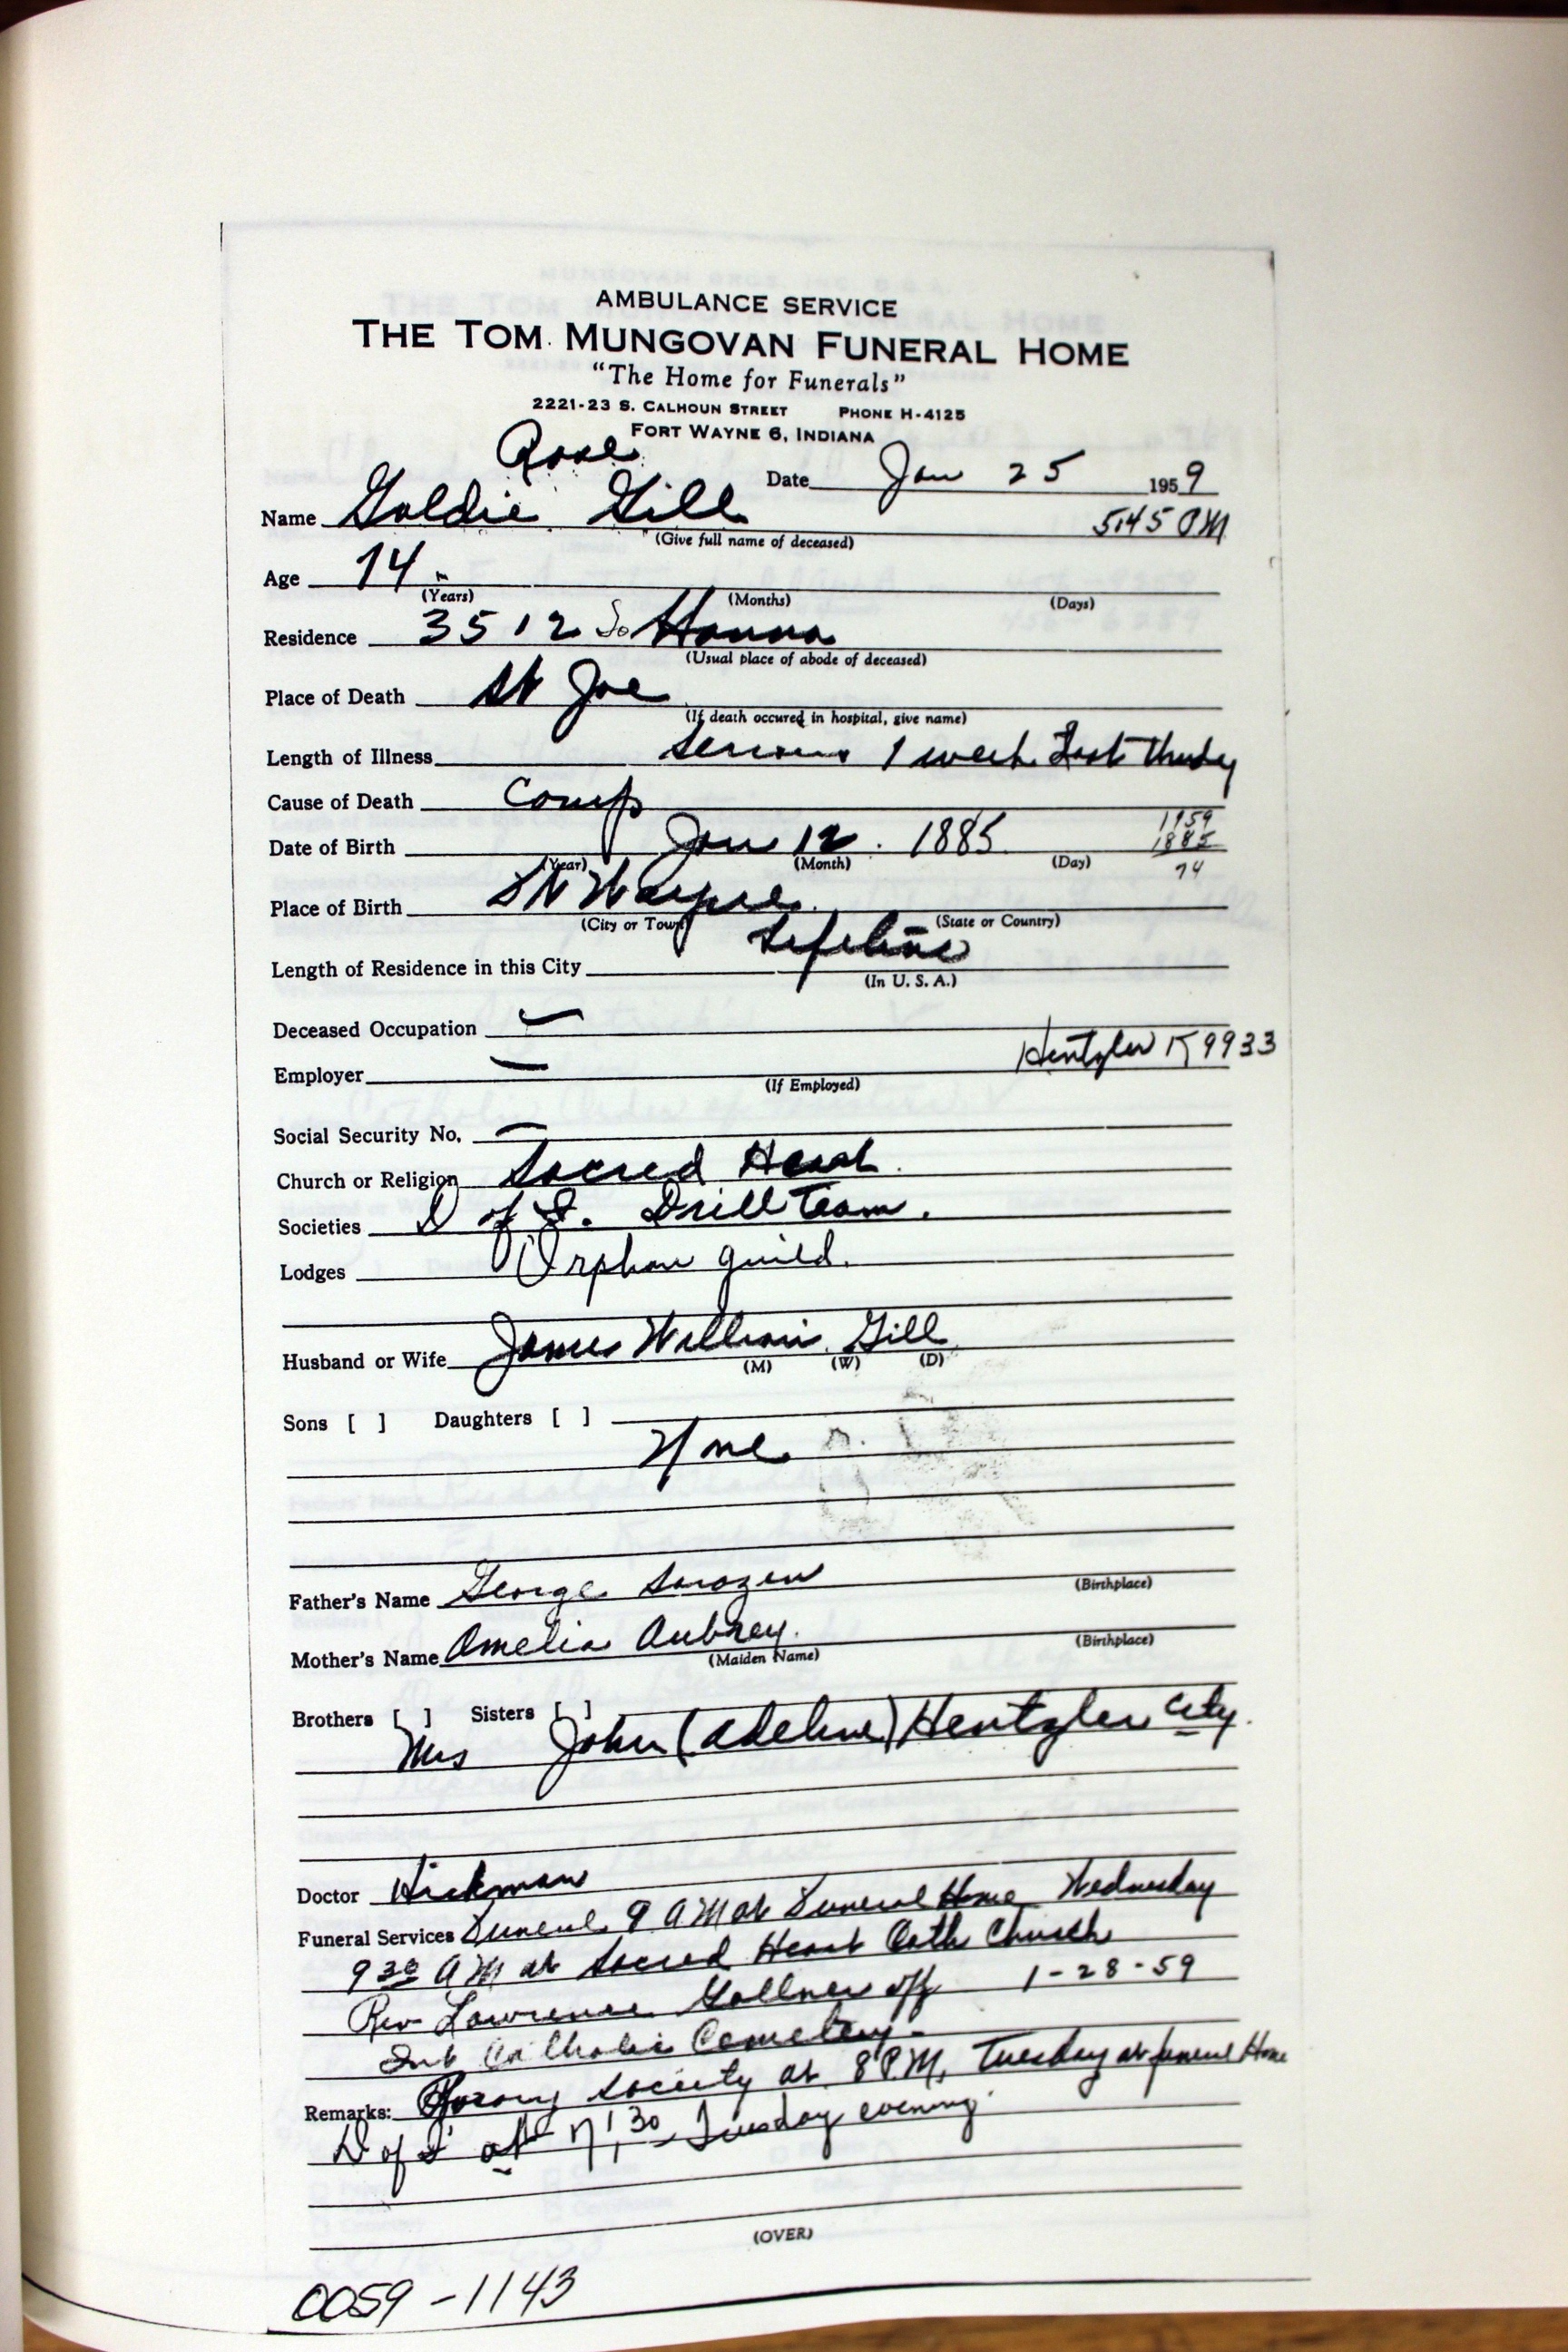 AMBULANCE SERVICE
THE TOM MUNGOVAN FUNERAL HOME
"The Home for Funerals"
2221-23 S. CALHOUN STREET PHONE H-4125
FORT WAYNE 6, INDIANA
Rose
Date Jan 25 1959
Name Goldie Gill 5:45 PM
(Give full name of deceased)
Age 74
(Years) (Months) (Days)
Residence 3512 So Hanna
(Usual place of abode of deceased)
Place of Death St Joe
(If death occured in hospital, give name)
Length of Illness Serious 1 week Last
Cause of Death Comp
1959
Date of Birth Jan 12. 1885 1885
(Year) (Month) (Day) 74
Place of Birth Ft Wayne
(City or Town) (State or Country)
Length of Residence in this City Lifetime
(In U. S. A.)
Deceased Occupation —
Hentzler K 9933
Employer —
(If Employed)
Social Security No. —
Church or Religion Sacred Heart.
Societies D of I. Drill Team.
Lodges Orphan guild.
Husband or Wife James William Gill
(M) (W) (D)
Sons [ ] Daughters [ ]
None
Father's Name George Sorozen
(Birthplace)
Mother's Name Amelia Aubrey.
(Maiden Name) (Birthplace)
Brothers [ ] Sisters [ ]
Mrs John (Adeline) Hentzler City.
Doctor Hickman
Funeral Services Funeral 9 AM at Funeral Home Wednesday
9 30 AM at Sacred Heart Cath Church
Rev Lawrence Gollner off 1-28-59
Int Catholic Cemetery.
Remarks: Rosary Society at 8 P.M. Tuesday at funeral Home
D of I at 7:30 Tuesday evening
(OVER)
0059-1143